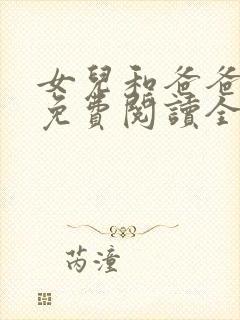 女兒和爸爸
免費閱讀全
芮潼